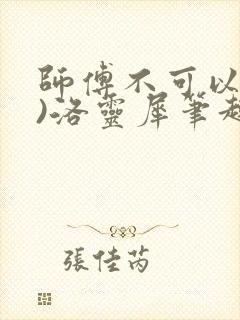 師傅不可以
)洛靈犀筆趣
張佳芮